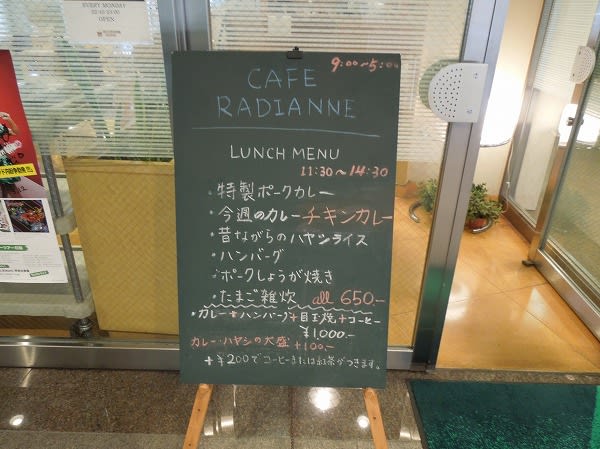 EVERY MONDAY
OPEN
9:00~5:00
CAFE
RADIANNE
LUNCH MENU
11:30~14:30
・特製ポークカレー
・今週のカレーチキンカレー
・昔ながらのハヤシライス
・ハンバーグ
・ポークしょうが焼き
・たまご雑炊 all 650.-
・カレー+ハンバーグ+目玉焼+コーヒー
¥1,000.-
カレー・ハヤシの大盛 +100.-
+¥200でコーヒーまたは紅茶がつきます。